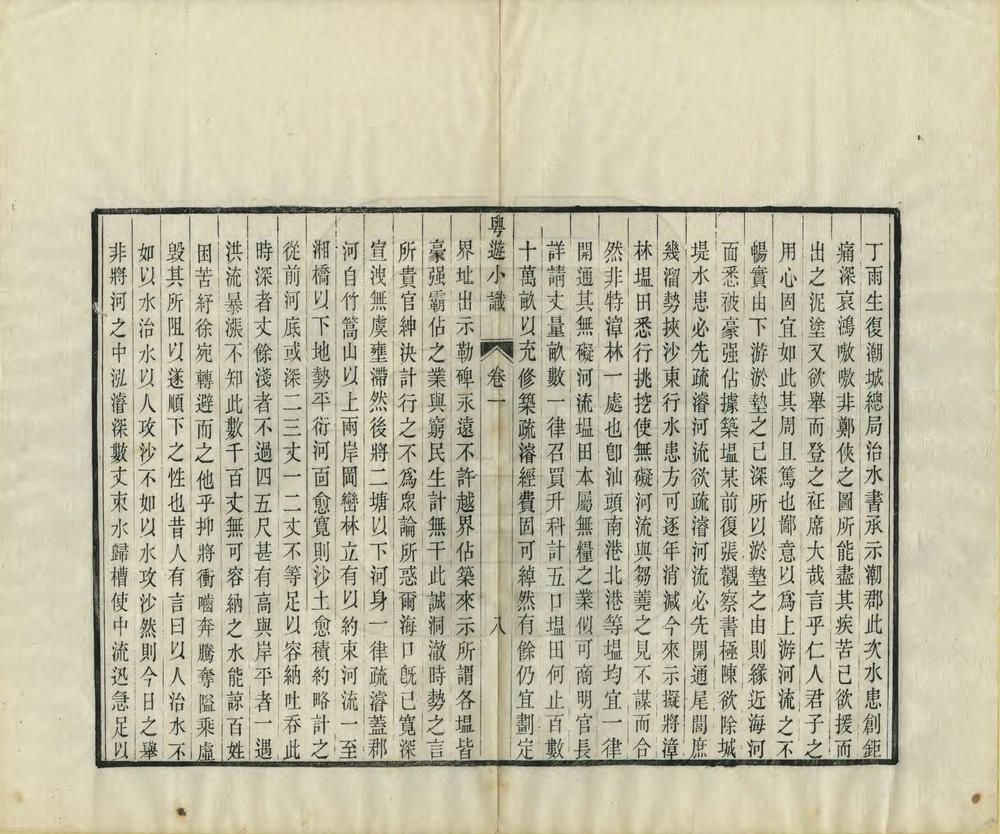 丁雨生復潮城總局治水書承示潮郡此次水患創鉅
痛深哀鴻嗷嗷非鄭俠之圖所能盡其疾苦已欲援而
出之泥塗又欲舉而登之衽席大哉言乎仁人君子之
用心固宜如此其周且篤也鄙意以爲上游河流之不
暢實由下游淤墊之已深所以淤墊之由則緣近海河
面悉被豪强佔據築塭某前復張觀察書極陳欲除城
堤水患必先疏濬河流欲疏濬河流必先開通尾閭庶
幾溜勢挾沙東行水患方可逐年消減今來示擬將漳
林塭田悉行挑挖使無礙河流與芻蕘之見不謀而合
然非特漳林一處也卽汕頭南港北港等塭均宜一律
開通其無礙河流塭田本屬無糧之業似可商明官長
詳請丈量畝數一律召買升科計五口塭田何止百數
十萬畝以充修築疏濬經費固可綽然有餘仍宜劃定
粵遊小識
卷一
八
界址出示勒碑永遠不許越界佔築來示所謂各塭皆
豪强霸佔之業與窮民生計無干此誠洞澈時勢之言
所貴官紳決計行之不爲眾論所惑爾海口旣已寬深
宣洩無虞壅滯然後將二塘以下河身一律疏濬蓋郡
河自竹篙山以上兩岸岡巒林立有以約束河流一至
湘橋以下地勢平衍河面愈寬則沙土愈積約略計之
從前河底或深二三丈一二丈不等足以容納吐吞此
時深者丈餘淺者不過四五尺甚有高與岸平者一遇
洪流暴漲不知此數千百丈無可容納之水能諒百姓
困苦紆徐宛轉避而之他乎抑將衝嚙奔騰奪隘乘虛
毀其所阻以遂順下之性也昔人有言曰以人治水不
如以水治水以人攻沙不如以水攻沙然則今日之舉
非將河之中泓濬深數丈束水歸槽使中流迅急足以